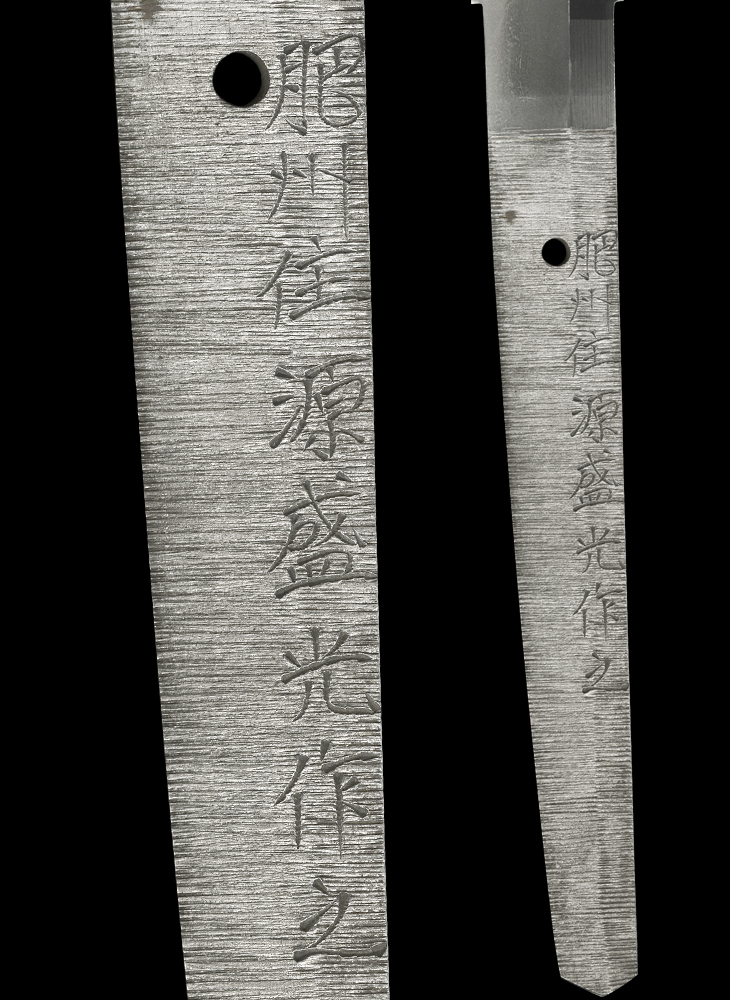 肥州住源盛光作之
肥州住源盛光作之